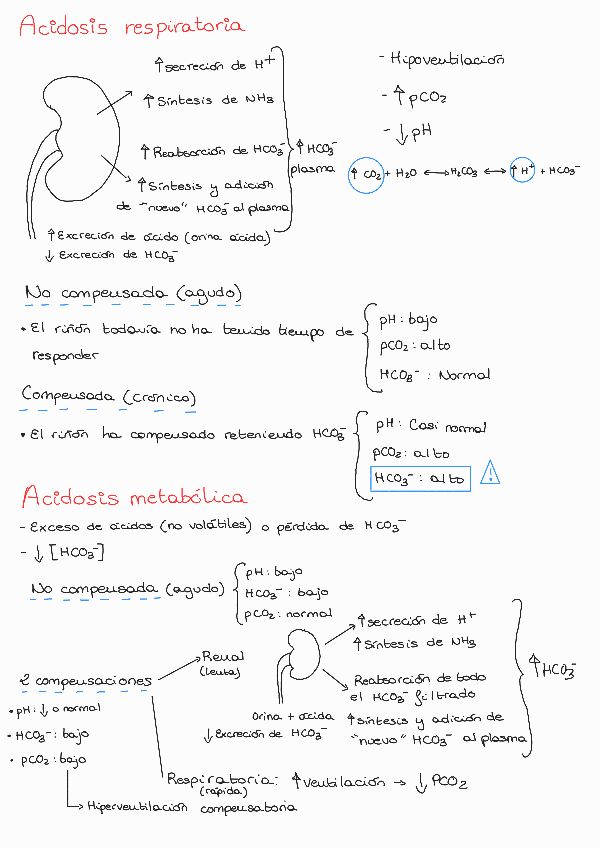 Acidosis respiratoria
↑ secreción de H⁺
↑ Síntesis de NH3
↑ Reabsorción de HCO3⁻
↑ Síntesis y adición
de "nuevo" HCO3⁻ al plasma
↑ HCO3⁻
plasma
↑ Excreción de ácido (orina ácida)
↓ Excreción de HCO3⁻
- Hipoventilación
- ↑ pCO2
- ↓ pH
↑ CO2 + H2O ⟷ H2CO3 ⟷ ↑ H⁺ + HCO3⁻
No compensada (agudo)
• El riñón todavía no ha tenido tiempo de
responder
pH: bajo
pCO2: alto
HCO3⁻: Normal
Compensada (crónico)
• El riñón ha compensado reteniendo HCO3⁻
pH: Casi normal
pCO2: alto
HCO3⁻: alto
!
Acidosis metabólica
- Exceso de ácidos (no volátiles) o pérdida de HCO3⁻
- ↓ [HCO3⁻]
No compensada (agudo)
pH: bajo
HCO3⁻: bajo
pCO2: normal
2 compensaciones
• pH: ↓ o normal
• HCO3⁻: bajo
• pCO2: bajo
Hiperventilación compensatoria
Renal
(lenta)
Orina + ácida
↓ Excreción de HCO3⁻
↑ secreción de H⁺
↑ Síntesis de NH3
Reabsorción de todo
el HCO3⁻ filtrado
↑ Síntesis y adición de
"nuevo" HCO3⁻ al plasma
↑ HCO3⁻
Respiratoria: ↑ Ventilación → ↓ PCO2
(rápida)